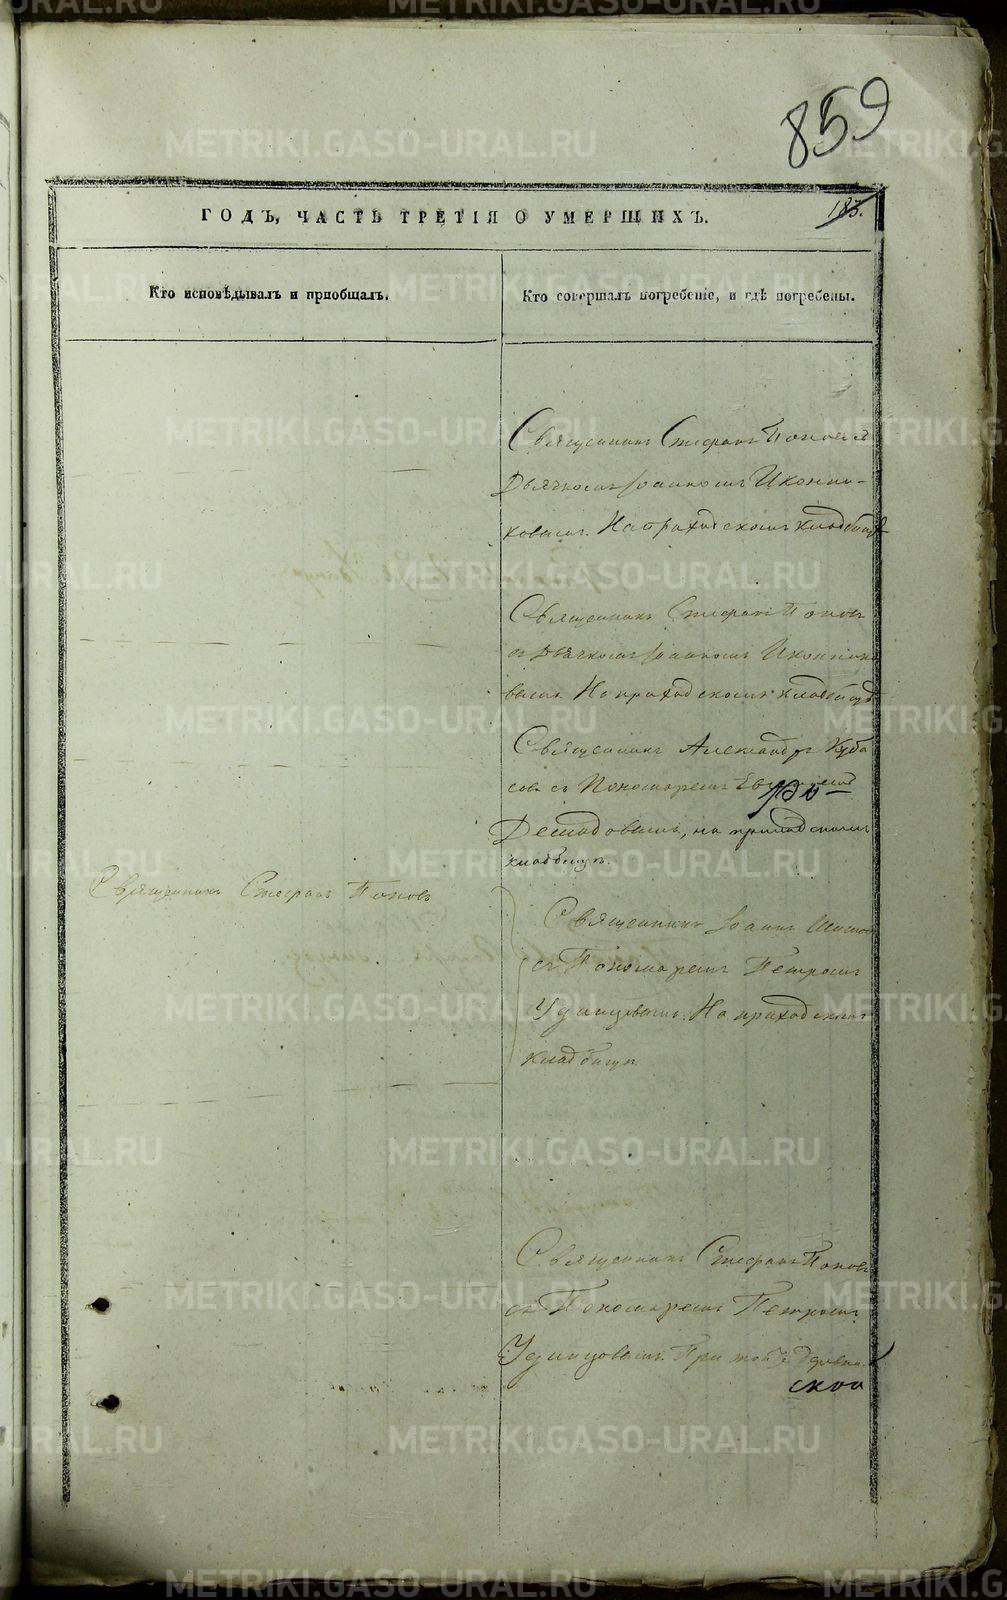 859
183.
ГОДЪ, ЧАСТЬ ТРЕТІЯ О УМЕРШИХЪ.
Кто исповѣдывалъ и пріобщалъ.
Кто совершалъ погребеніе, и гдѣ погребены.
Священникъ Стефанъ Поповъ с
Дьячкомъ Іоанномъ Иконни-
ковымъ. На приходскомъ кладбищѣ
Священникъ Стефанъ Поповъ
съ Дьячкомъ Іоанномъ Иконнико
вымъ. На приходскомъ кладбищѣ
Священникъ Александръ Куба
совъ съ Пономаремъ
на приходскомъ
кладбищѣ.
Священникъ Стефанъ Поповъ
Священникъ Іоаннъ
съ Пономаремъ Петромъ
Удинцовымъ. На приходскомъ
кладбищѣ
Священникъ Стефанъ Поповъ
съ Пономаремъ Петромъ
Удинцовымъ. При
ской
METRIKI.GASO-URAL.RU